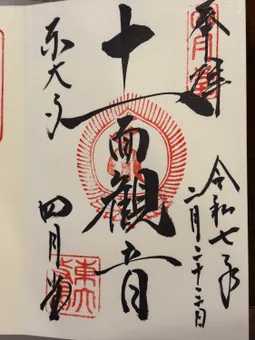 奉拝
令和七年
二月二十二日
十一面觀音
東大寺
四月堂